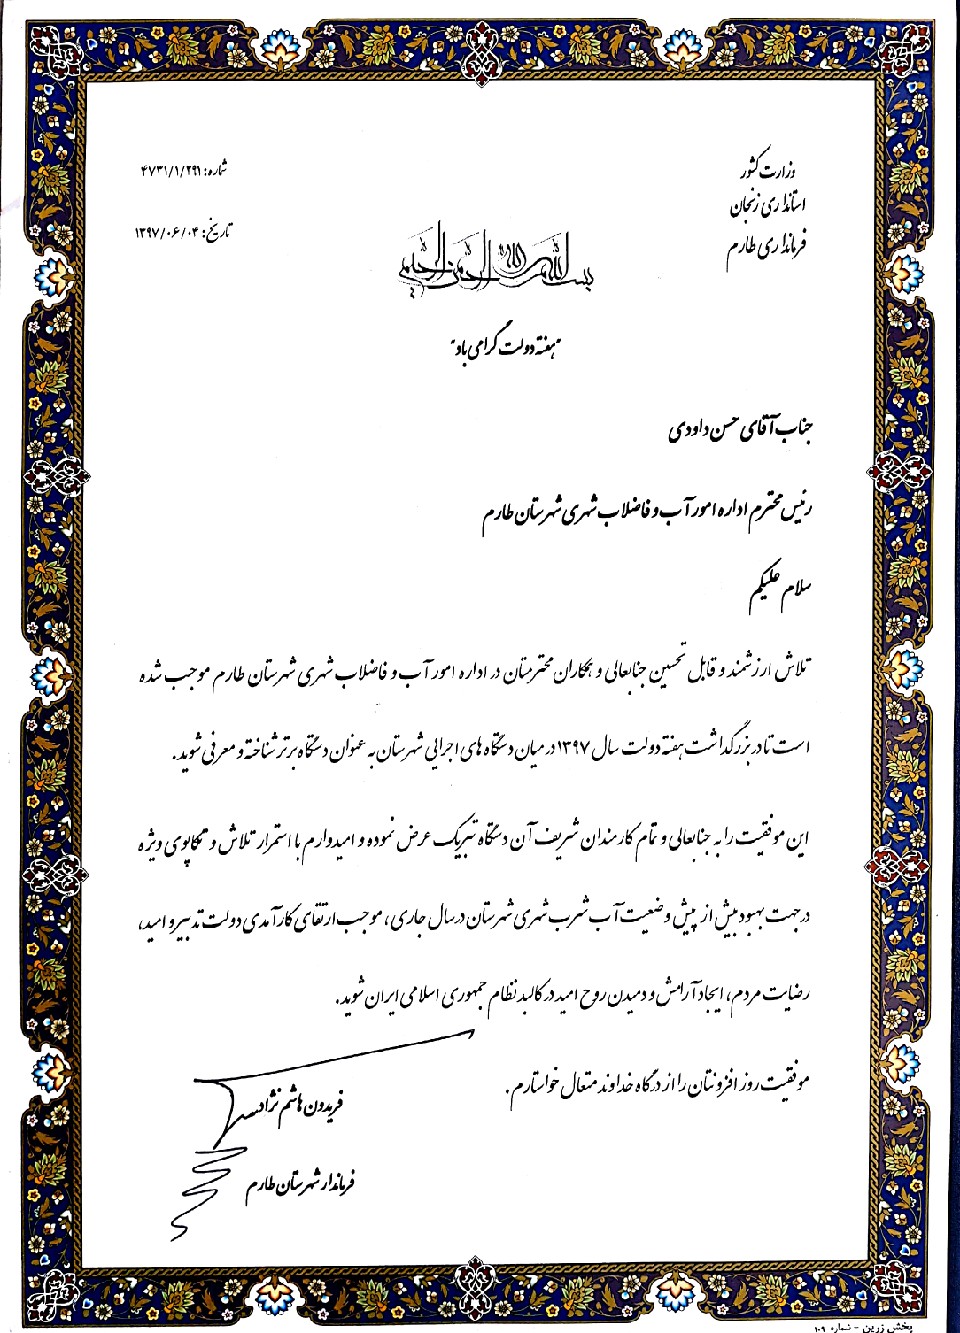 وزارت کشور
استانداری زنجان
فرمانداری طارم
شماره: ۴۷۳۱/۱/۲۹۱
تاریخ: ۱۳۹۷/۰۶/۰۴
بسم الله الرحمن الرحیم
"هفته دولت گرامی باد"
جناب آقای حسن داودی
رئیس محترم اداره امور آب و فاضلاب شهری شهرستان طارم
سلام علیکم
تلاش ارزشمند و قابل تحسین جنابعالی و همکاران محترمتان در اداره امور آب و فاضلاب شهری شهرستان طارم موجب شده
است تا در بزرگداشت هفته دولت سال ۱۳۹۷ در میان دستگاه های اجرایی شهرستان به عنوان دستگاه برتر شناخته و معرفی شوید.
این موفقیت را به جنابعالی و تمام کارمندان شریف آن دستگاه تبریک عرض نموده و امیدوارم با استمرار تلاش و تکاپوی ویژه
در جهت بهبود بیش از پیش وضعیت آب شرب شهری شهرستان در سال جاری، موجب ارتقای کارآمدی دولت تدبیر و امید،
رضایت مردم، ایجاد آرامش و دمیدن روح امید در کالبد نظام جمهوری اسلامی ایران شوید.
موفقیت روز افزونتان را از درگاه خداوند متعال خواستارم.
فریدون هاشم نژاد
فرماندار شهرستان طارم
پخش زرین - شماره ۱۰۹